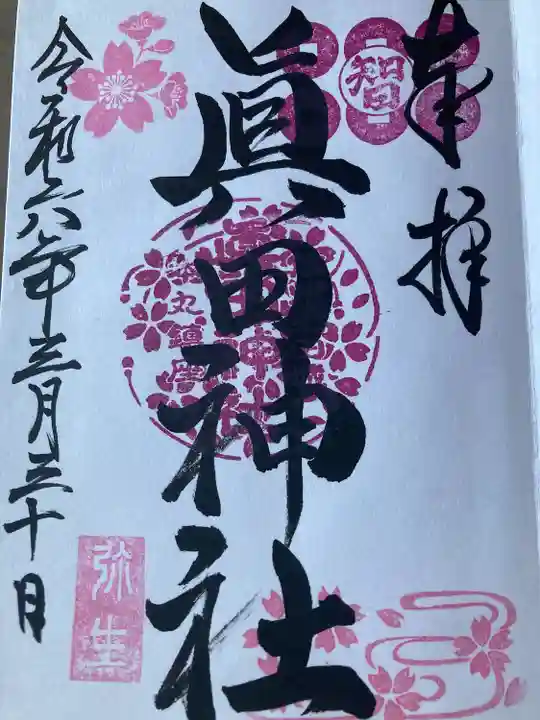 奉拝
智
眞田神社
本丸鎮座
令和六年三月三十日
弥生